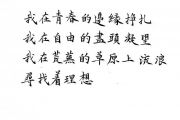 我在青春的邊緣掙扎
我在自由的盡頭凝望
我在荒蕪的草原上流浪
尋找着理想